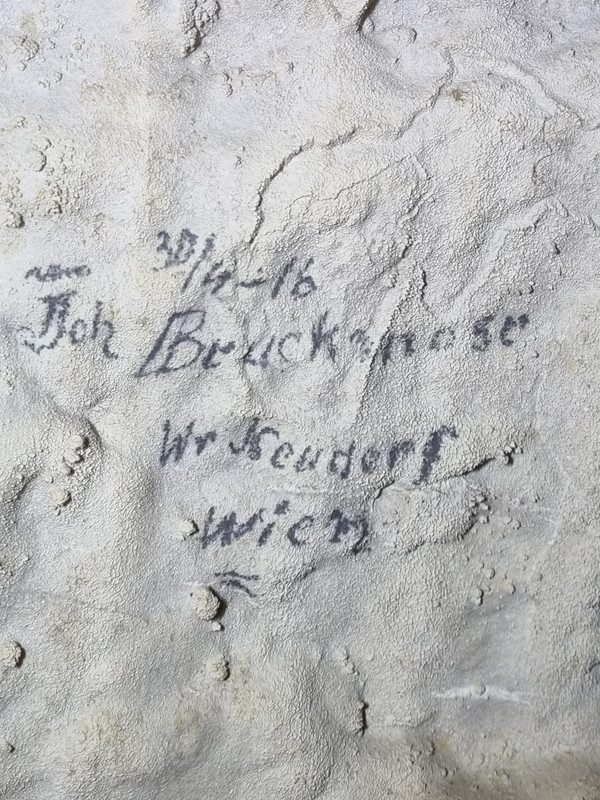 30/4-16
Joh Brucksnose
Wr Neudorf
Wien